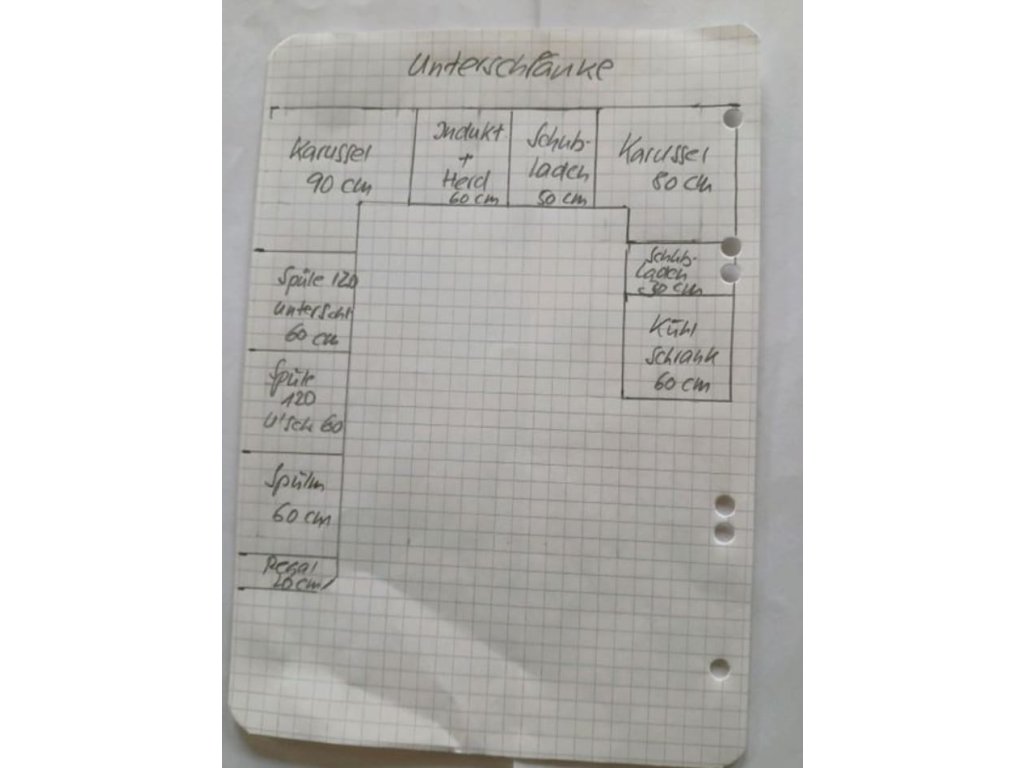 Unterschränke
Karussel
90 cm
Indukt
+
Herd
60 cm
Schub-
laden
50 cm
Karussel
80 cm
Spüle 120
Unterschr
60 cm
Spüle
120
U'Sch 60
Spülm
60 cm
Regal
20 cm
Schub-
laden
30 cm
Kühl
Schrank
60 cm